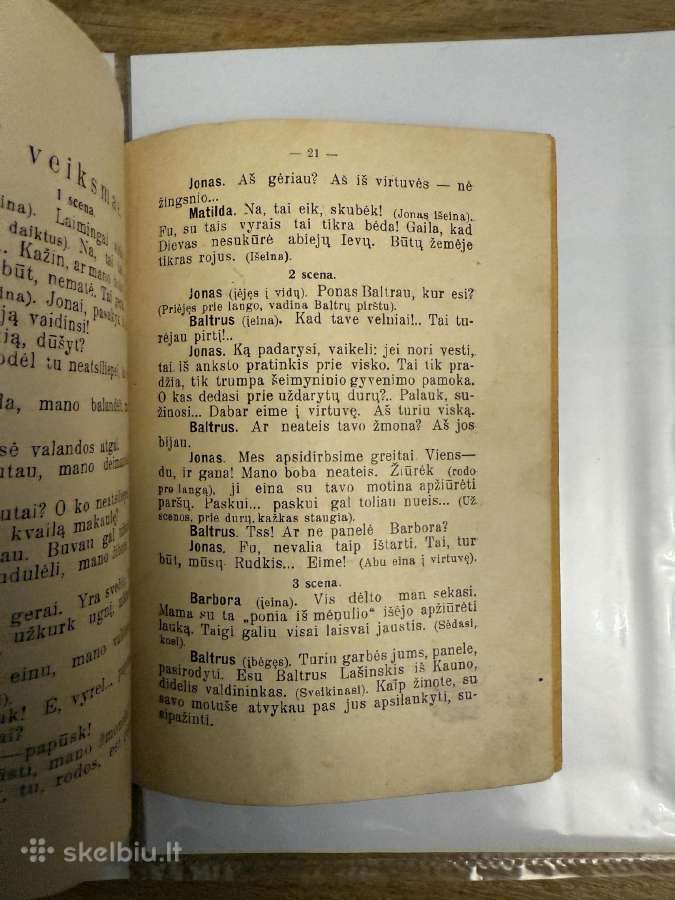 veiksmas
1 scena.
ina). Laimingai
daiktus). Na, tai
Kažin, ar mano
būt, nematė. Tai
ina). Jonai,
ją vaidinsi!
ią, dūšyt?
odėl tu neatsiliepei
la, mano
sė valandos atgul.
utau, mano
utai? O ko neatsiliepei
kvailą makaulę?
au. Buvau gal
ndulėli, mano
gerai. Yra
užkurk ugnį,
einu, mano
uk! E, vyrel..
ai?
—papūsk!
ūsti, mano
tu, rodos,
— 21 —
Jonas. Aš gėriau? Aš iš virtuvės — nė
žingsnio...
Matilda. Na, tai eik, skubėk! (Jonas išeina).
Fu, su tais vyrais tai tikra bėda! Gaila, kad
Dievas nesukūrė abiejų Ievų. Būtų žemėje
tikras rojus. (Išeina).
2 scena.
Jonas (įėjęs į vidų). Ponas Baltrau, kur esi?
(Priėjęs prie lango, vadina Baltrų pirštu).
Baltrus (įeina). Kad tave velniai!.. Tai tu-
rėjau pirtį!..
Jonas. Ką padarysi, vaikeli: jei nori vesti,
tai iš anksto pratinkis prie visko. Tai tik pra-
džia, tik trumpa šeimyninio gyvenimo pamoka.
O kas dedasi prie uždarytų durų?.. Palauk, su-
žinosi... Dabar eime į virtuvę. Aš turiu viską.
Baltrus. Ar neateis tavo žmona? Aš jos
bijau.
Jonas. Mes apsidirbsime greitai. Viens—
du, ir gana! Mano boba neateis. Žiūrėk (rodo
pro langą), ji eina su tavo motina apžiūrėti
paršų. Paskui... paskui gal toliau nueis... (Už
scenos, prie durų, kažkas staugia).
Baltrus. Tss! Ar ne panelė Barbora?
Jonas. Fu, nevalia taip ištarti. Tai, tur
būt, mūsų Rudkis... Eime! (Abu eina į virtuvę).
3 scena.
Barbora (įeina). Vis dėlto man sekasi.
Mama su ta „ponia iš mėnulio“ išėjo apžiūrėti
lauką. Taigi galiu visai laisvai jaustis. (Sėdasi,
kosi).
Baltrus (įbėgęs). Turiu garbės jums, panele,
pasirodyti. Esu Baltrus Lašinskis iš Kauno,
didelis valdininkas. (Sveikinasi). Kaip žinote, su
savo motuše atvykau pas jus apsilankyti, su-
sipažinti.
skelbiu.lt